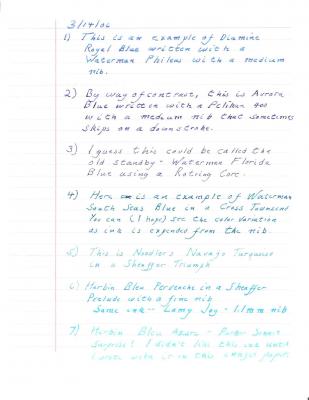 3/14/06
1) This is an example of Diamine
Royal Blue written with a
Waterman Phileas with a medium
nib.
2) By way of contrast, this is Aurora
Blue written with a Pelikan 400
with a medium nib that sometimes
skips on a downstroke.
3) I guess this could be called the
old standby - Waterman Florida
Blue using a Rotring Core.
4) Here is an example of Waterman
South Seas Blue in a Cross Townsend
You can (I hope) see the color variation
as ink is expended from the nib.
5) This is Noodlers Navajo Turquoise
in a Sheaffer Triumph
6) Herbin Bleu Pervenche in a Sheaffer
Prelude with a fine nib
Same ink - Lamy Joy - 1.1mm nib
7) Herbin Bleu Azure - Parker Sonnet
Surprise! I didn't like this ink until
I wrote with it on this (cheap) paper.